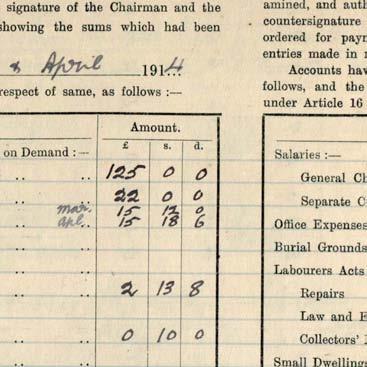 signature of the Chairman and the
showing the sums which had been
& April 1914
respect of same, as follows :—
Amount.
£ s. d.
on Demand :—
125 0 0
22 0 0
Mar. 15 12 0
Apl. 15 18 6
2 13 8
0 10 0
amined, and auth
countersignature
ordered for paym
entries made in
Accounts hav
follows, and the
under Article 16
Salaries :—
General Cl
Separate C
Office Expenses
Burial Grounds
Labourers Acts
Repairs
Law and E
Collectors'
Small Dwellings